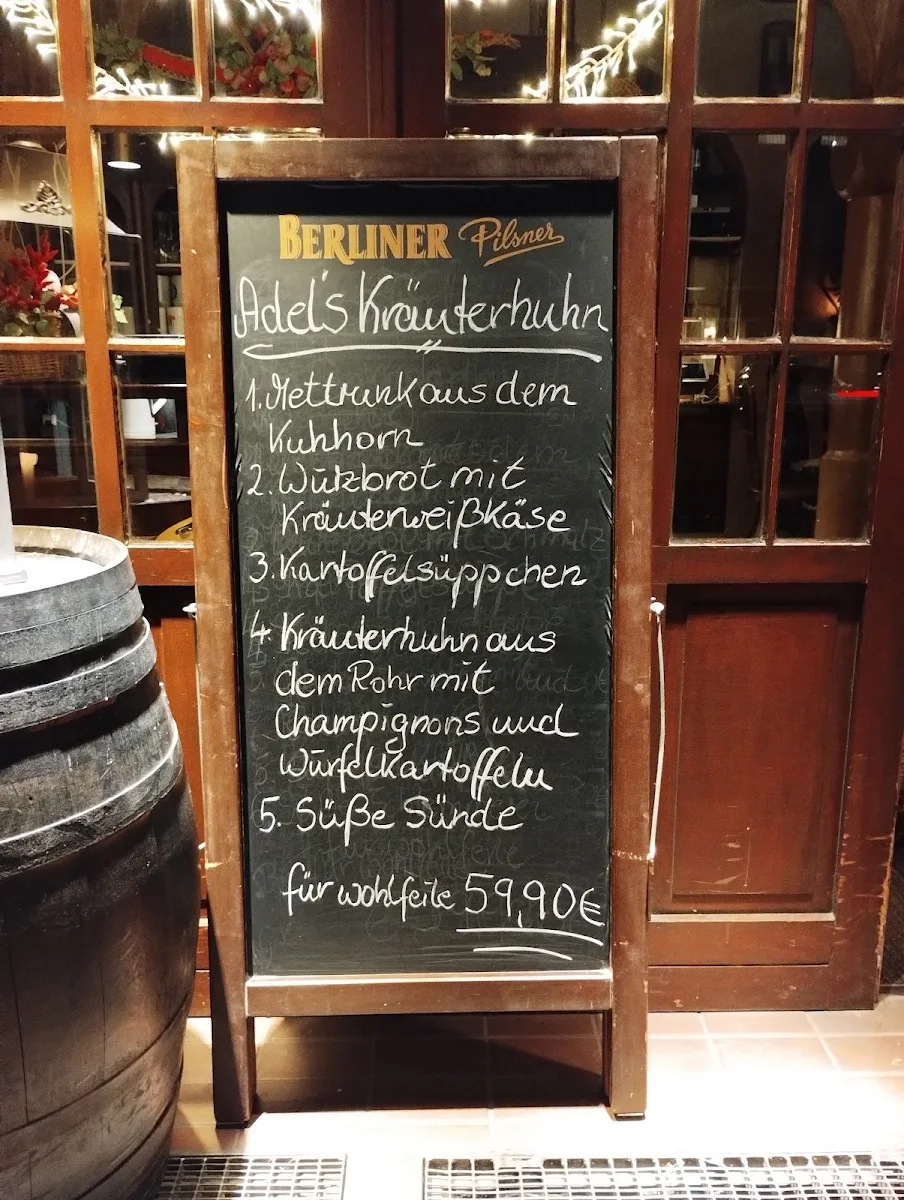 BERLINER Pilsner
Adel's Kräuterhuhn
1. Mettrunk aus dem
Kuhhorn
2. Würzbrot mit
Kräuterweißkäse
3. Kartoffelsüppchen
4. Kräuterhuhn aus
dem Rohr mit
Champignons und
Würfelkartoffeln
5. Süße Sünde
für wohlfeile 59,90€